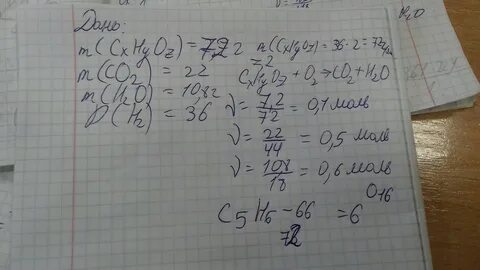 Дано:
m(CxHyOz)=7,2 г
m(CO2) = 22
m(H2O) = 10,82
D(H2) = 36
M(CxHyOz)=36·2=72
CxHyOz + O2 → CO2 + H2O
ν = 7,2/72 = 0,1 моль
ν = 22/44 = 0,5 моль
ν = 108/18 = 0,6 моль
O16
C5H6 - 66 = 6
72
H2O